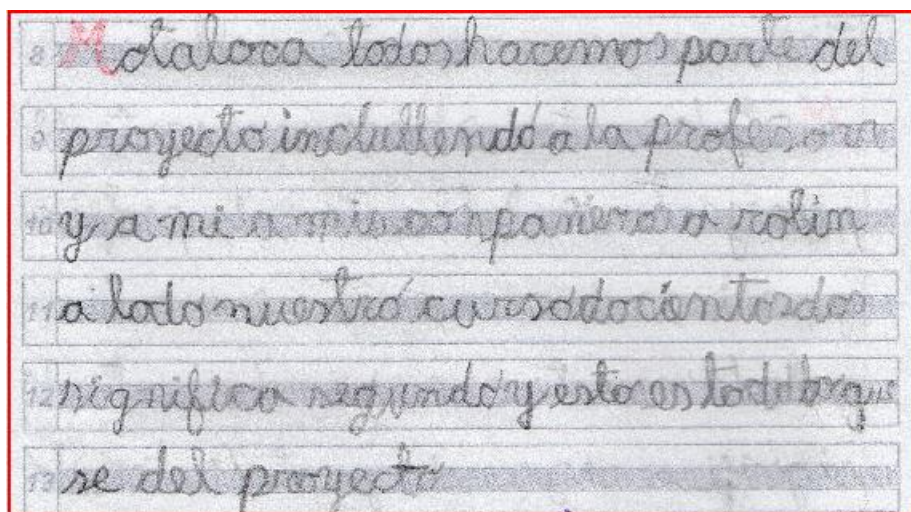 8 Motaloca todos hacemos parte del
9 proyecto inclullendo a la profesora
10 y a mi a mis conpañeros a rolin
11 a todo nuestro curso docientos dos
12 significa segundo y esto es todo lo que
13 se del proyecto